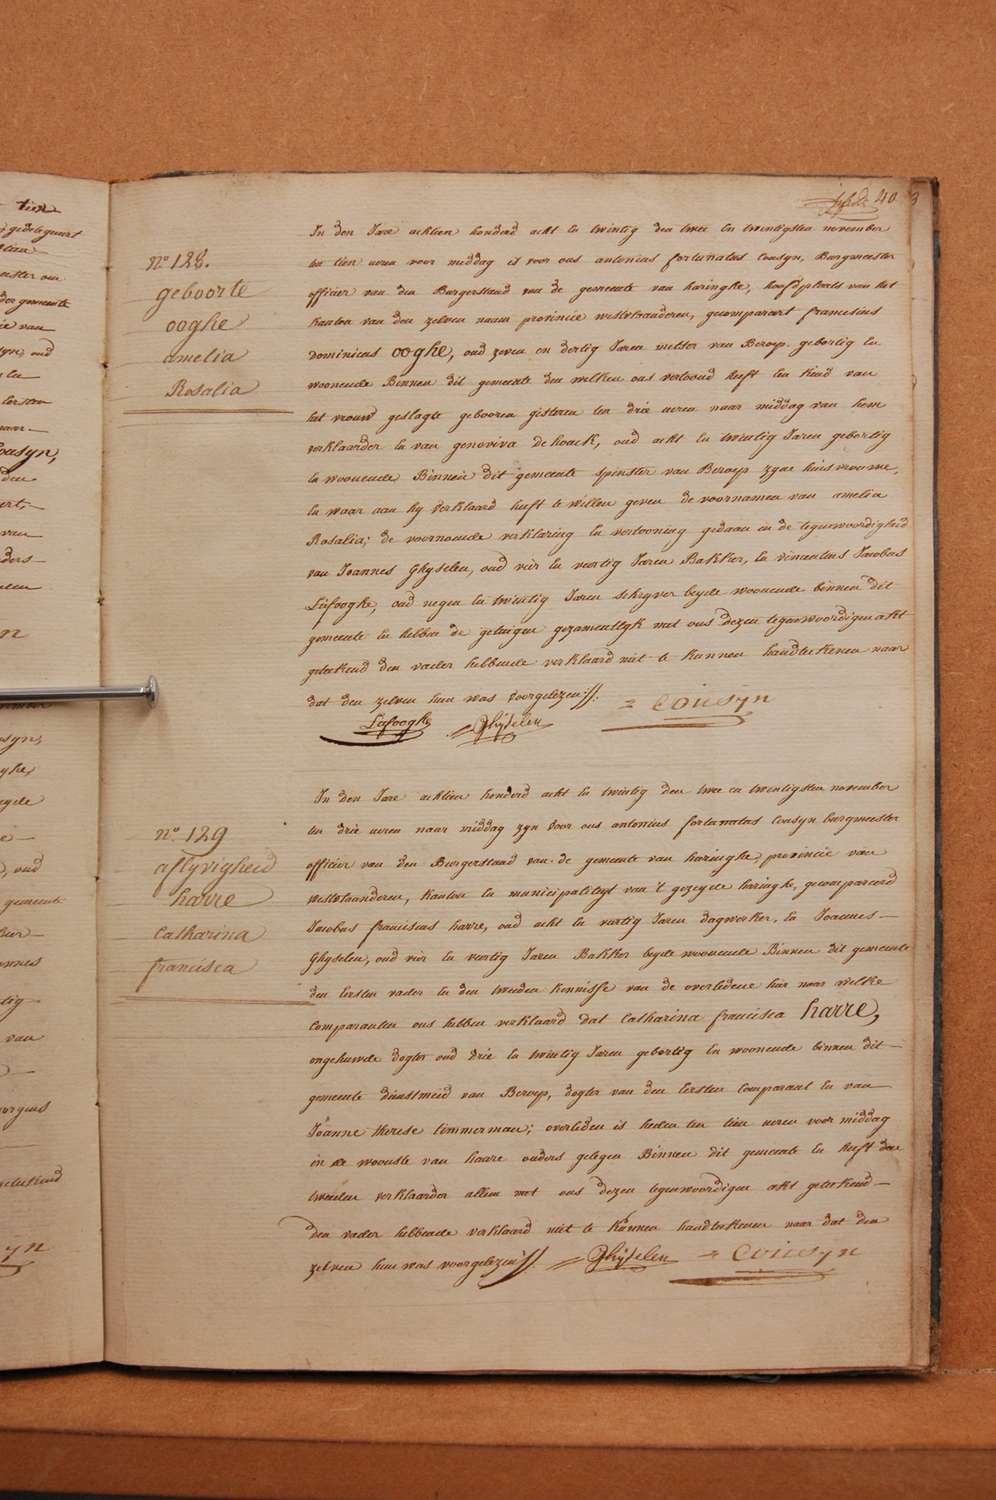 40
N° 128.
geboorte
ooghe
amelia
Rosalia
In den Jare achtien honderd acht en twintig den twee en twintigsten november
ten tien uren voor middag is voor ons antonius fortunatus Cousyn, Burgmeester
officier van den Burgerstand van de gemeente van haringhe, hoofdplaats van het
kanton van den zelven naem provincie westvlaanderen, gecomparart franciscus
dominicus ooghe, oud zeven en dertig Jaren metser van Beroep. gebortig en
woonende Binnen dit gemeente den welken ons vertoond heeft een kind van
het vrouw geslagte geboren gisteren ten drie uren naar middag van hem
verklaarder en van genoviva de haeck, oud acht en twintig Jaren gebortig
en woonende Binnen dit gemeente spinster van Beroep zyne huisvrouwe,
en waar aan hy verklaard heeft te willen geven de voornamen van amelia
Rosalia; de voornoemde verklaring en vertooning gedaan in de tegenwoordigheid
van Joannes Ghyselen, oud vier en veertig Jaren Bakker, en vincentius Jacobus
Lafooghe, oud negen en twintig Jaren schryver beyde woonende binnen dit
gemeente en hebben de getuigen gezamentlyk met ons dezen tegenwoordigen akt
geteekend den vader hebbende verklaard niet te kunnen handteekenen naar
dat den zelven hun was voorgelezen //.
Lafooghe Ghyselen Cousyn
n° 129
aflyvigheid
harre
Catharina
francisca
In den Jare achtien honderd acht en twintig den twee en twintigsten november
ten drie uren naar middag zyn voor ons antonius fortunatus Cousyn burgmeester
officier van den Burgerstand van de gemeente van haringhe provincie van
westvlaanderen, kanton en municipaliteyt van 't gezeyde haringhe, gecompareerd
Jacobus franciscus harre, oud acht en veertig Jaren dagwerker, en Joannes
Ghyselen, oud vier en veertig Jaren Bakker beyde woonende Binnen dit gemeente
den Eersten vader en den tweeden kennisse van de overledene hier naar welke
comparanten ons hebben verklaard dat Catharina francisca harre,
ongehuwde dogter oud drie en twintig Jaren gebortig en woonende binnen dit
gemeente dienstmeid van Beroep, dogter van den Eersten Comparant en van
Joanne therese timmerman; overleden is heden ten tien uren voor middag
in de wooniste van haare ouders gelegen Binnen dit gemeente en heeft den
tweeden verklaarder alleen met ons dezen tegenwoordigen akt geteekend
den vader hebbende verklaard niet te kunnen handteekenen naar dat den
zelven hun was voorgelezen //. Ghyselen Cousyn